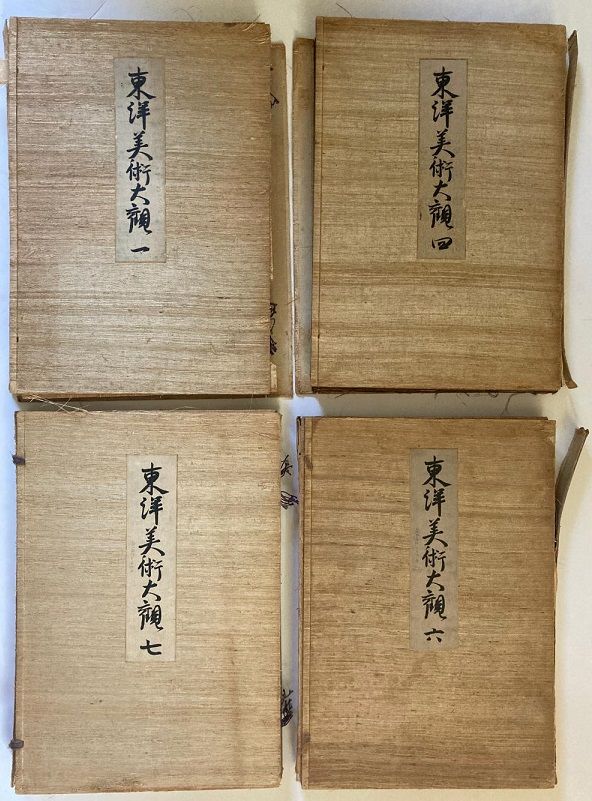 東洋美術大觀 一
東洋美術大觀 四
東洋美術大觀 七
東洋美術大觀 六